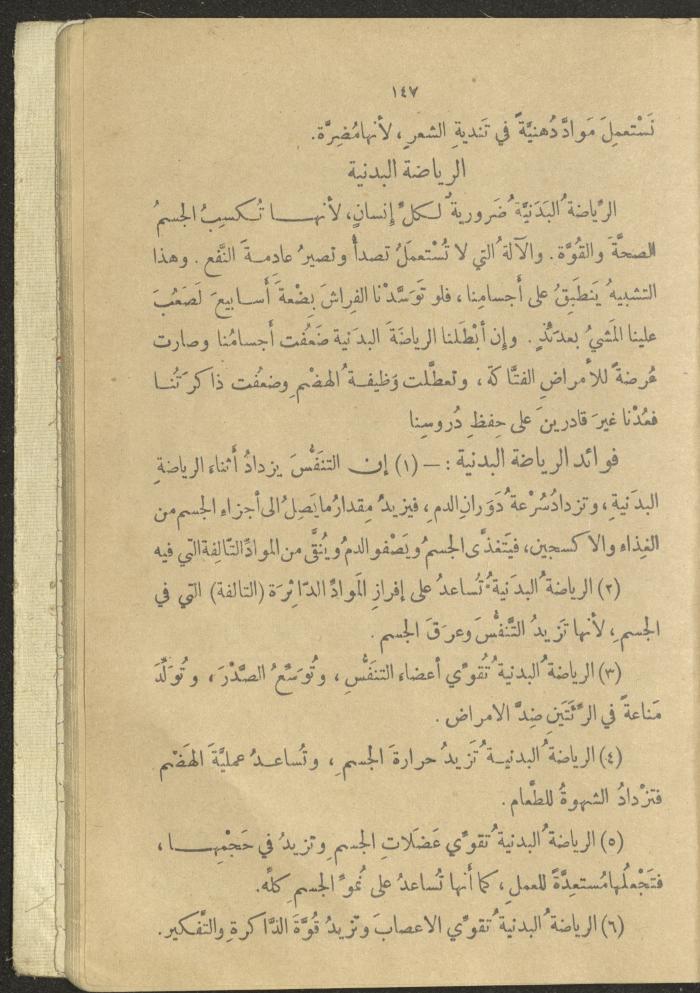 ١٤٧
نَسْتعمِلَ مَوادَّ دُهنيَّةً في تَنديةِ الشعرِ، لأنها مُضِرَّة.
الرياضة البدنية
الرِّياضةُ البَدَنيَّةُ ضَروريةٌ لكلِّ إنسانٍ، لأنهـــا تُكسِبُ الجسمُ
الصحَّةَ والقُوَّة. والآلةُ التي لا تُسْتعمَلُ تصدأُ وتصيرُ عادمةَ النَّفع. وهذا
التشبيهُ يَنطَبِقُ على أَجسامِنا، فلو تَوَسَّدْنا الفِراشَ بِضْعةَ أَسابيعَ لَصَعُبَ
علينا المَشيُ بعدَئذٍ. وإن أبْطَلنا الرياضَةَ البدَنية ضَعُفت أجسامُنا وصارت
عُرضةً للأمراضِ الفتّاكة، وتعطَّلت وَظيفةُ الهضْمِ وضعُفت ذاكرَتُنا
فعُدْنا غيرَ قادرينَ على حِفظِ دُروسِنا
فوائد الرياضة البدنية: — (١) إن التنَفُّسَ يزدادُ أثناءَ الرياضةِ
البدَنيةِ، وتزدادُ سُرْعةُ دَوَرانِ الدمِ، فيزيدُ مِقدارُ ما يَصِلُ الى أجزاءِ الجسمِ من
الغِذاءِ والاكسجين، فيَتغذَّى الجسمُ ويَصْفو الدمُ ويُنقَّى من الموادِّ التّالِفةِ التي فيه
(٢) الرياضةُ البدَنيةُ تُساعدُ على إفرازِ المَوادِّ الدّاثِرَة (التالفة) التي في
الجسمِ، لأنها تَزيدُ التَّنفُّسَ وعرَقَ الجسم.
(٣) الرياضةُ البدنيةُ تُقوِّي أعضاءَ التنَفُّسِ، وتُوَسِّعُ الصَّدْرَ، وتُوَلِّدُ
مَناعةً في الرِّئَتَينِ ضِدَّ الامراض.
(٤) الرياضةُ البدنيةُ تَزيدُ حرارةَ الجسمِ، وتُساعدُ عمليَّةَ الهَضْمِ
فتزْدادُ الشهوةُ للطَّعام.
(٥) الرياضةُ البدنيةُ تقوِّي عَضَلاتِ الجسمِ وتزيدُ في حَجْمِهـــا،
فتَجْعلُها مُستعِدَّةً للعملِ، كما أنها تُساعدُ على نُموِّ الجسمِ كلِّه.
(٦) الرياضةُ البدنيةُ تقوِّي الاعصابَ وتَزيدُ قُوَّةَ الذّاكرةِ والتَّفكير.